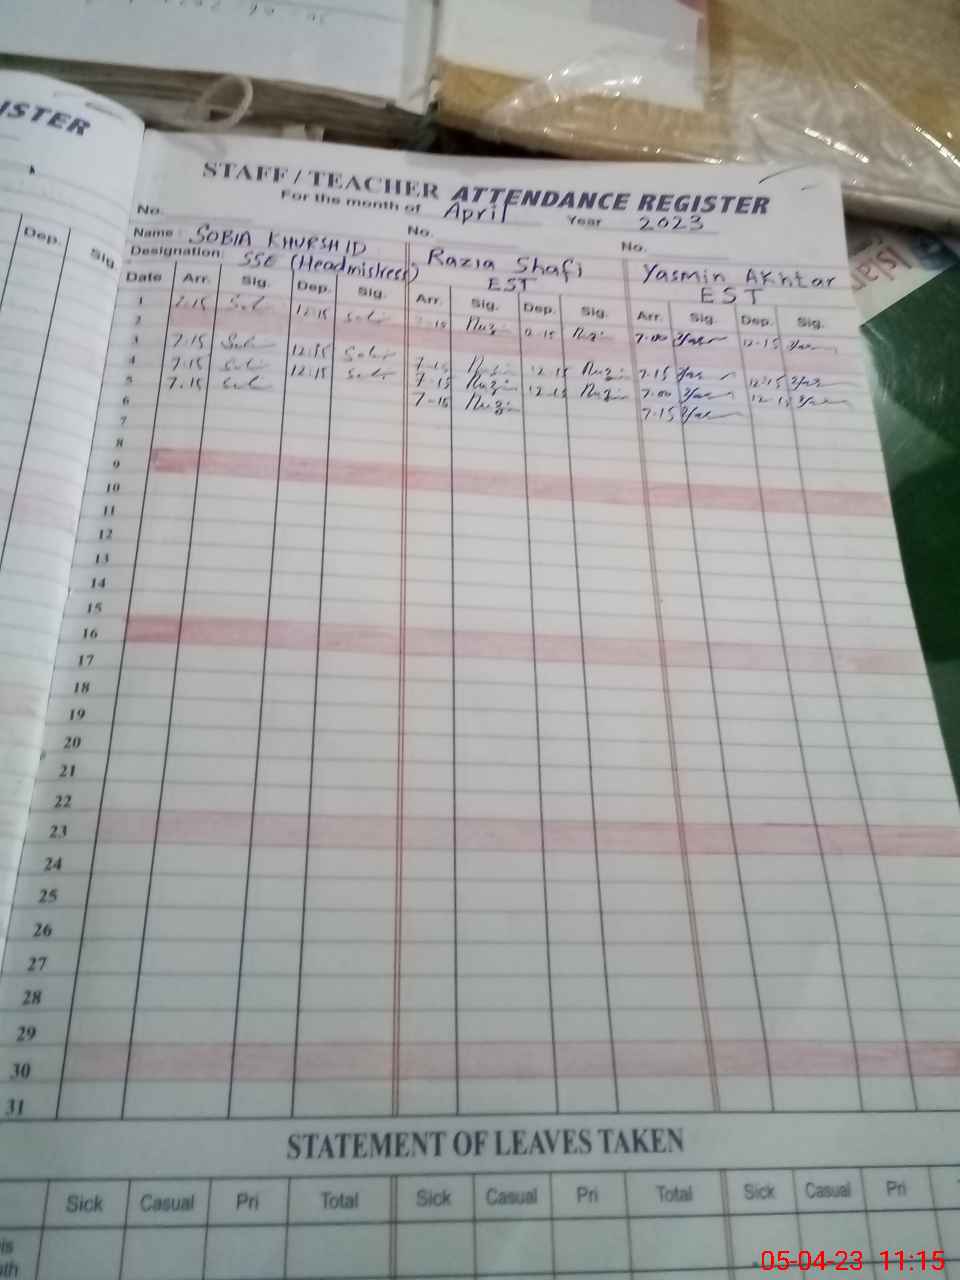 ISTER
STAFF / TEACHER ATTENDANCE REGISTER
For the month of April Year 2023
No. No. No.
Name: SOBIA KHURSHID Razia Shafi Yasmin Akhtar
Designation: SSE (Headmistress) EST EST
Dep. Sig.
Date Arr. Sig. Dep. Sig. Arr. Sig. Dep. Sig. Arr. Sig. Dep. Sig.
1 7.15 12:15 7-15 12-15 7.00 12-15
2
3 7.15 12:15 7-15 12-15 7.15 12:15
4 7.15 12:15 7-15 12-15 7.00 12-15
5 7.15 7-15 7.15
6
7
8
9
10
11
12
13
14
15
16
17
18
19
20
21
22
23
24
25
26
27
28
29
30
31
STATEMENT OF LEAVES TAKEN
Sick Casual Pri Total Sick Casual Pri Total Sick Casual Pri
05-04-23 11:15